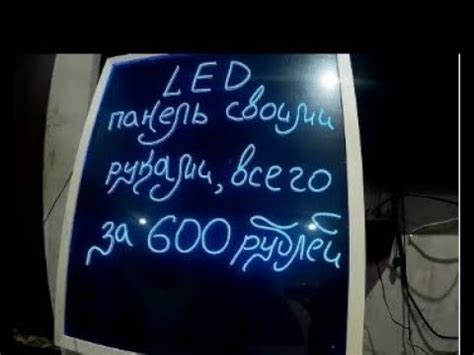 LED
панель своими
руками, всего
за 600 рублей